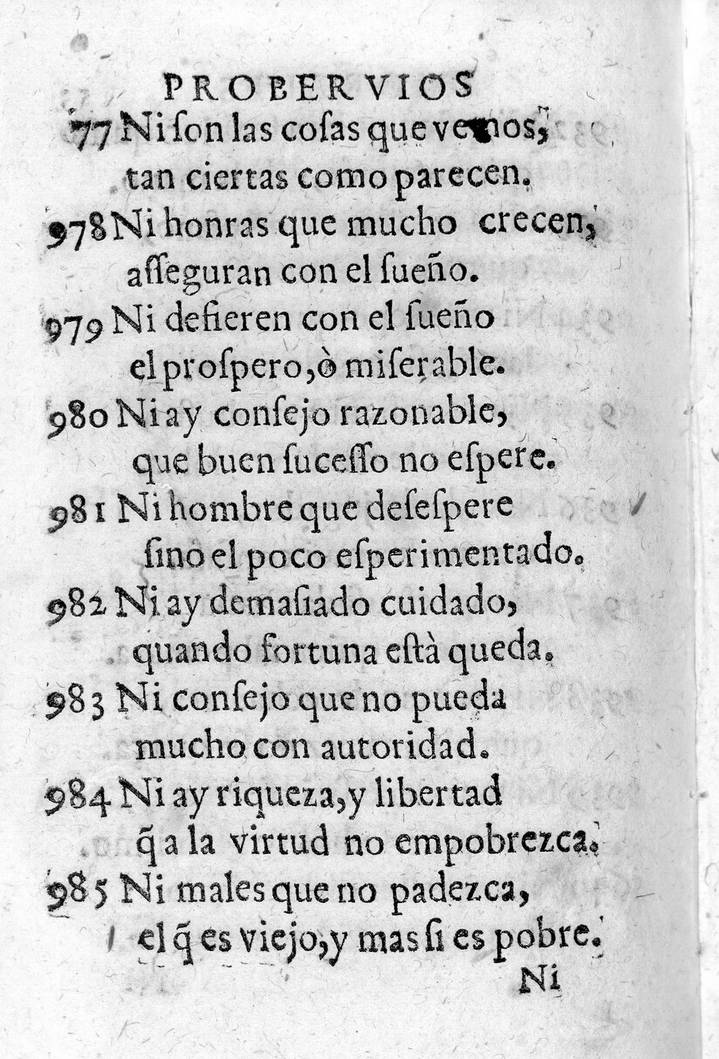 PROBERVIOS
77 Ni ſon las coſas que vemos,
tan ciertas como parecen.
978 Ni honras que mucho crecen,
aſſeguran con el ſueño.
979 Ni defieren con el ſueño
el proſpero, ò miſerable.
980 Ni ay conſejo razonable,
que buen ſuceſſo no eſpere.
981 Ni hombre que deſeſpere
ſinò el poco eſperimentado.
982 Ni ay demaſiado cuidado,
quando fortuna eſtà queda.
983 Ni conſejo que no pueda
mucho con autoridad.
984 Ni ay riqueza, y libertad
q̃ a la virtud no empobrezca.
985 Ni males que no padezca,
el q̃ es viejo, y mas ſi es pobre.
Ni